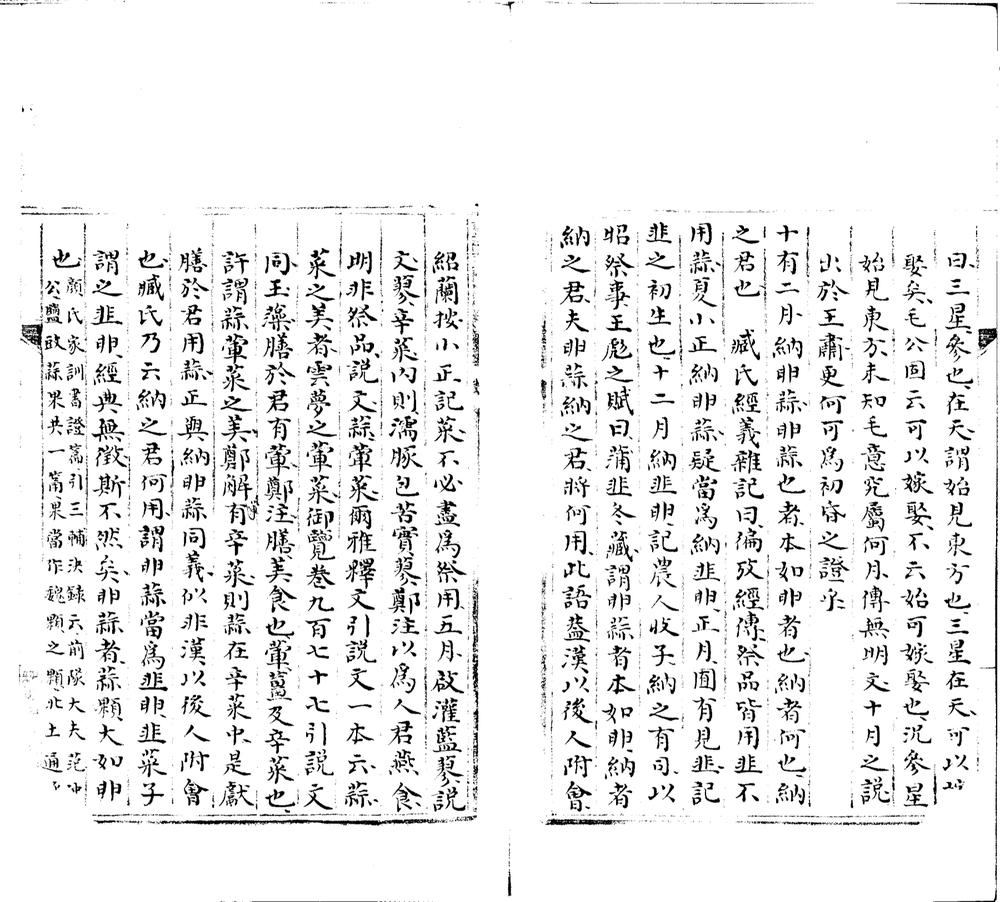 曰三星參也在天謂始見東方也三星在天可以
娶矣毛公固云可以嫁娶不云始可嫁娶也況參星
始見東方未知毛意究屬何月傳無明文十月之說
出於王肅更何可為初昏之證乎
十有二月納卵蒜卵蒜也者本如卵者也納者何也納
之君也　臧氏經義雜記曰徧攷經傳祭品皆用韭不
用蒜夏小正納卵蒜疑當為納韭卵正月囿有見韭記
韭之初生也十二月納韭卵記農人收子納之有司以
昭祭事王彪之賦曰蒲韭冬藏謂卵蒜者本如卵納者
納之君夫卵蒜納之君將何用此語葢漢以後人附會
紹蘭按小正記菜不必盡為祭用五月啟灌藍蓼說
文蓼辛菜內則濡豚包苦實蓼鄭注以為人君燕食
明非祭品說文蒜葷菜爾雅釋文引說文一本云蒜
菜之美者雲夢之葷菜御覽卷九百七十七引說文
同玉藻膳於君有葷鄭注膳美食也葷薑及辛菜也
許謂蒜葷菜之美鄭解有辛菜則蒜在辛菜中是獻
膳於君用蒜正與納卵蒜同義似非漢以後人附會
也臧氏乃云納之君何用謂卵蒜當為韭卵韭菜子
謂之韭卵經典無徵斯不然矣卵蒜者蒜顆大如卵
也顏氏家訓書證篇引三輔決錄云前隊大夫范仲
公鹽豉蒜果共一筩果當作魏顆之顆北土通